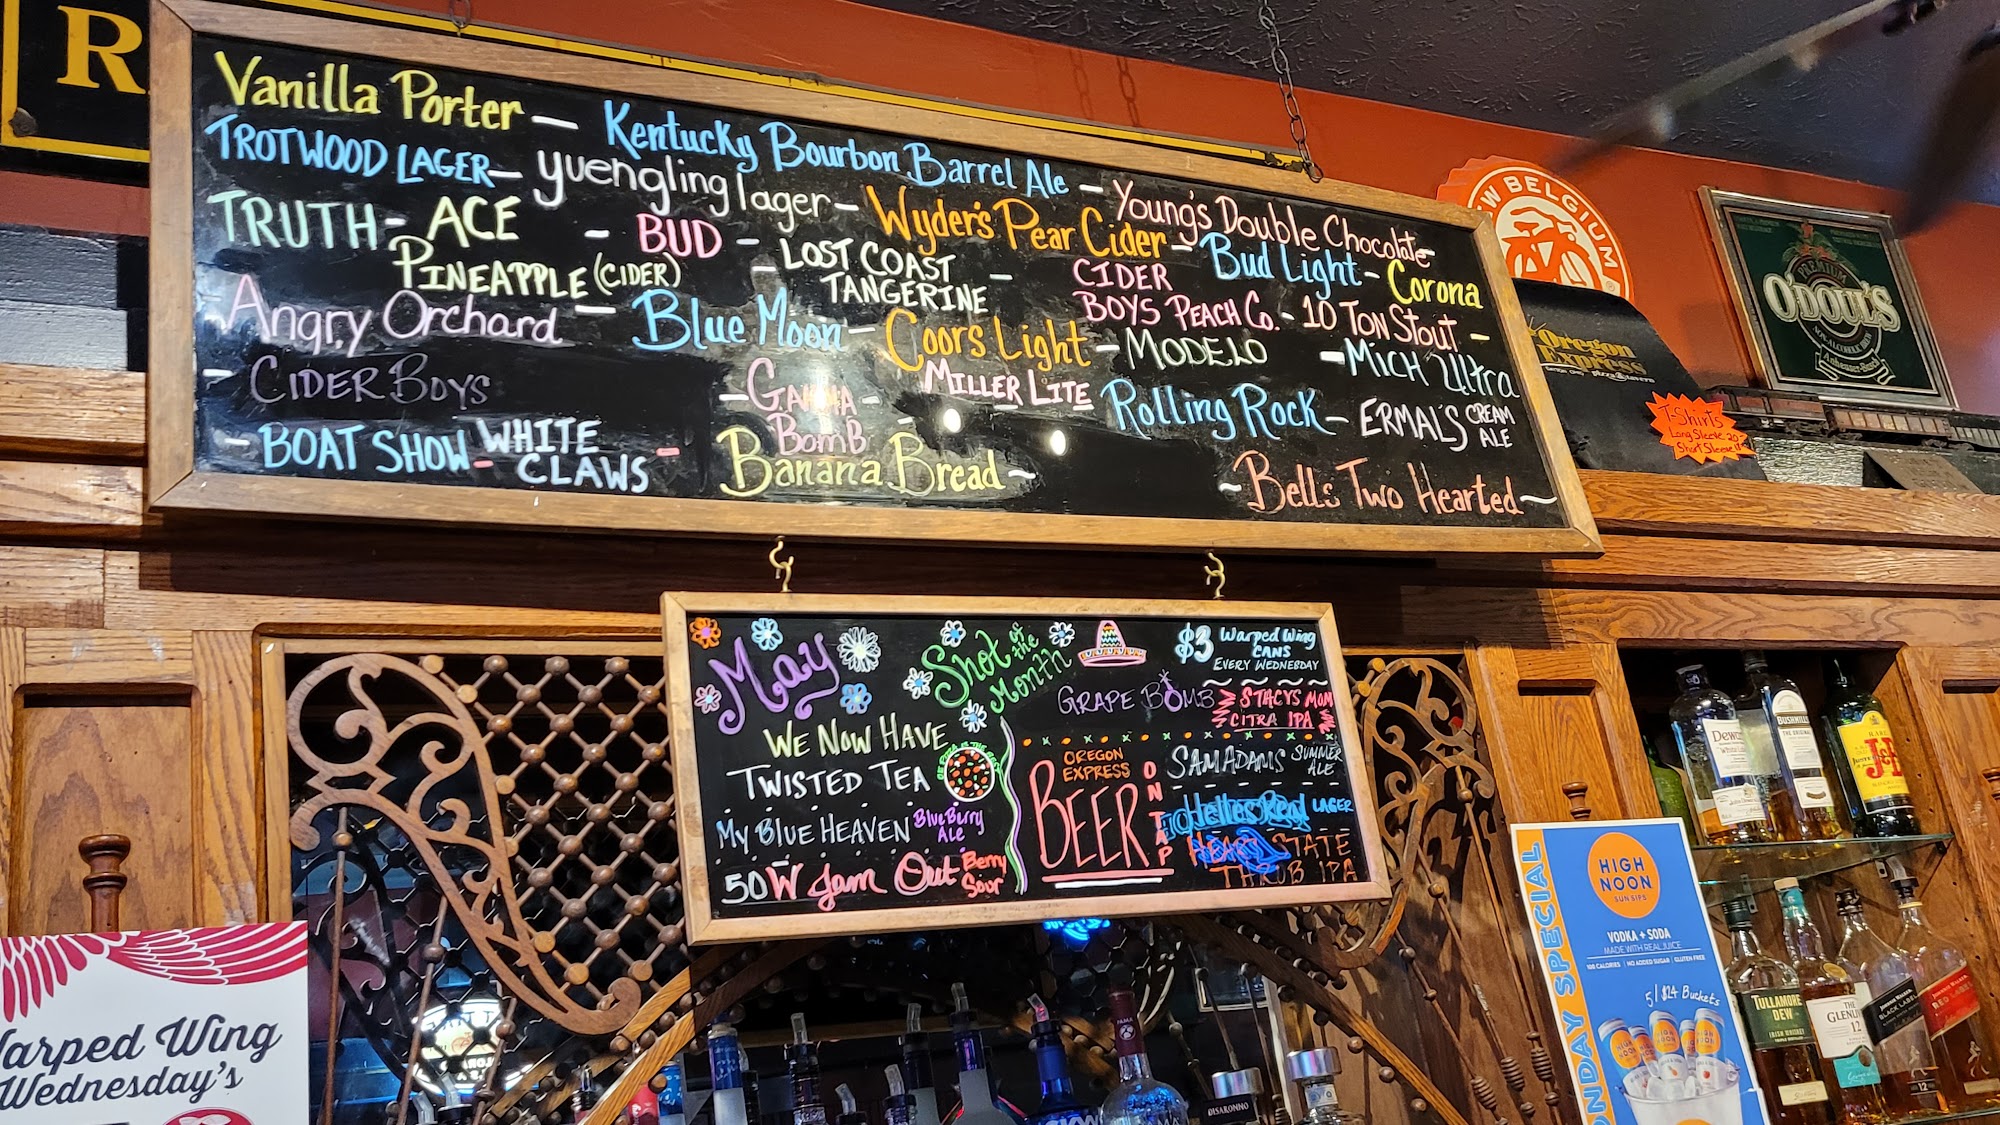 R
Vanilla Porter – Kentucky Bourbon Barrel Ale – Young's Double Chocolate –
TROTWOOD LAGER – yuengling lager – Wyder's Pear Cider – Bud Light – Corona
TRUTH – ACE PINEAPPLE (CIDER) – BUD – LOST COAST TANGERINE – CIDER BOYS PEACH CO. – 10 TON STOUT –
Angry Orchard – Blue Moon – Coors Light – MODELO – MICH Ultra
– CIDER BOYS – GAMMA BOMB – MILLER LITE Rolling Rock – ERMAL'S CREAM ALE
– BOAT SHOW – WHITE CLAWS – Banana Bread ~ ~ Bells Two Hearted ~
NEW BELGIUM
PREMIUM
O'DOUL'S
Oregon
Express
T-Shirts
Long Sleeve 20-
Short Sleeve
May
Shot of the Month
GRAPE BOMB
$3 Warped Wing
CANS
EVERY WEDNESDAY
STACYS MOM
CITRA IPA
WE NOW HAVE
TWISTED TEA
MY BLUE HEAVEN BlueBerry Ale
50W Jam Out Berry Sour
OREGON
EXPRESS
BEER
ON TAP
SAM ADAMS SUMMER ALE
LAGER
STATE
THROB IPA
Warped Wing
Wednesday's
MONDAY SPECIAL
HIGH
NOON
SUN SIPS
VODKA + SODA
MADE WITH REAL JUICE
100 CALORIES | NO ADDED SUGAR | GLUTEN FREE
5/$24 Buckets
Dewar's
BUSHMILLS
J&B
TULLAMORE
DEW
THE
GLENLIVET
12
JOHNNIE WALKER
BLACK LABEL
12
JOHNNIE WALKER
RED LABEL
DISARONNO
SKYY